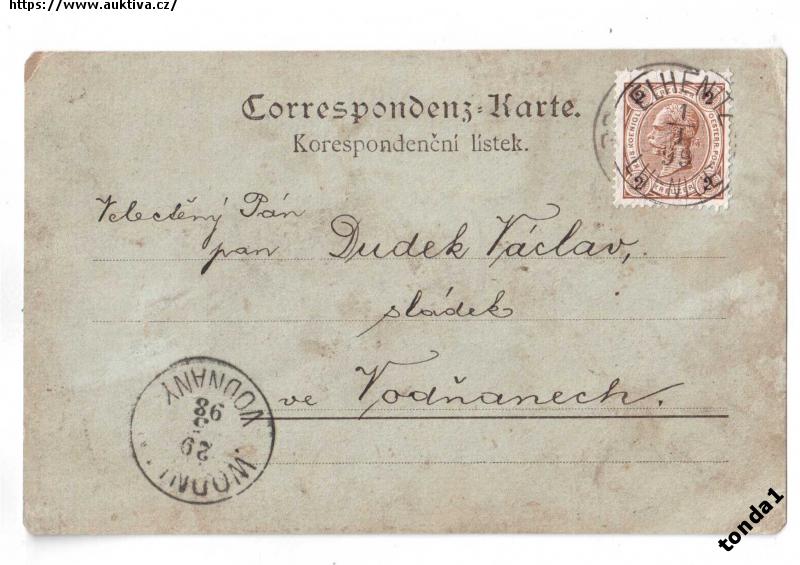 https://www.auktiva.cz/
Correspondenz-Karte.
Korespondenční lístek.
2 2
2 2
Velectěný Pán
pan Dudek Václav,
sládek
ve Vodňanech.
VODŇANY
98
29
tonda1